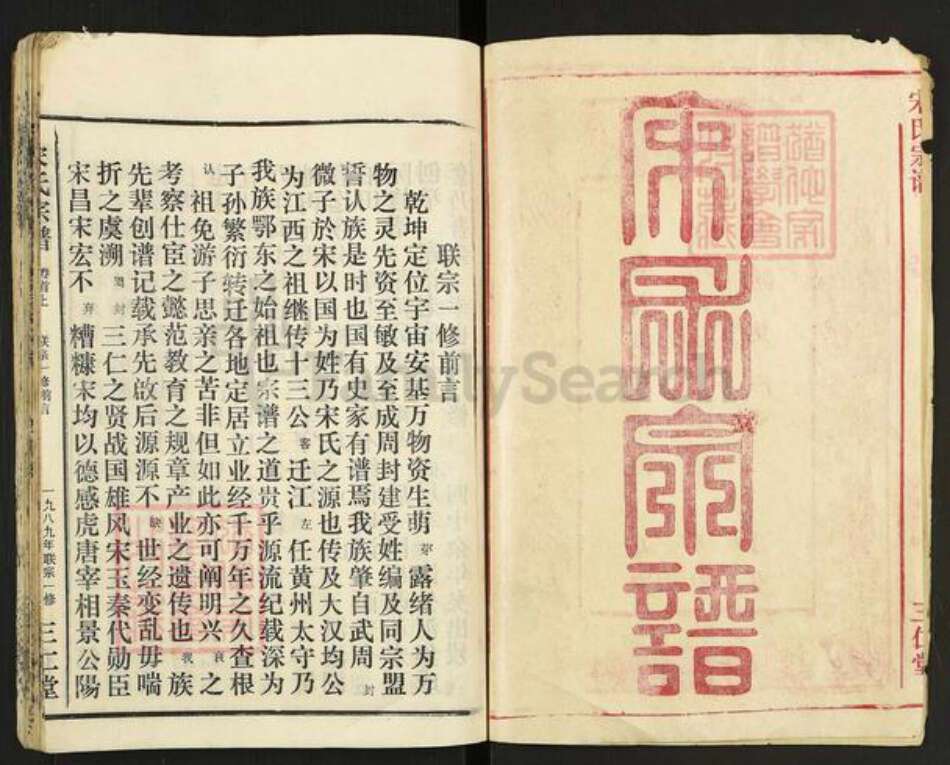 宋氏宗譜
三仁堂
宋氏宗譜
联宗一修前言
乾坤定位宇宙安基万物资生萌芽露绪人为万
物之灵先资至敏及至成周封建受姓编及同宗盟
誓认族是时也国有史家有谱焉我族肇自武周封
微子於宋以国为姓乃宋氏之源也传及大汉均公
为江西之祖继传十三公客迁江左任黄州太守乃
我族鄂东之始祖也宗谱之道贵乎源流纪载深为
子孙繁衍转迁各地定居立业经千万年之久查根
认祖免游子思亲之苦非但如此亦可阐明兴衰之
考察仕宦之懿范教育之规章产业之遗传也我族
先辈创谱记载承先啟后源源不缺世经变乱毋喘
折之虞溯封三仁之贤战国雄风宋玉秦代勋臣
宋昌宋宏不弃糟糠宋均以德感虎唐宰相景公陽
宋氏宗譜 卷首上 联宗一修前言 一九八九年联宗一修 三仁堂
FamilySearch